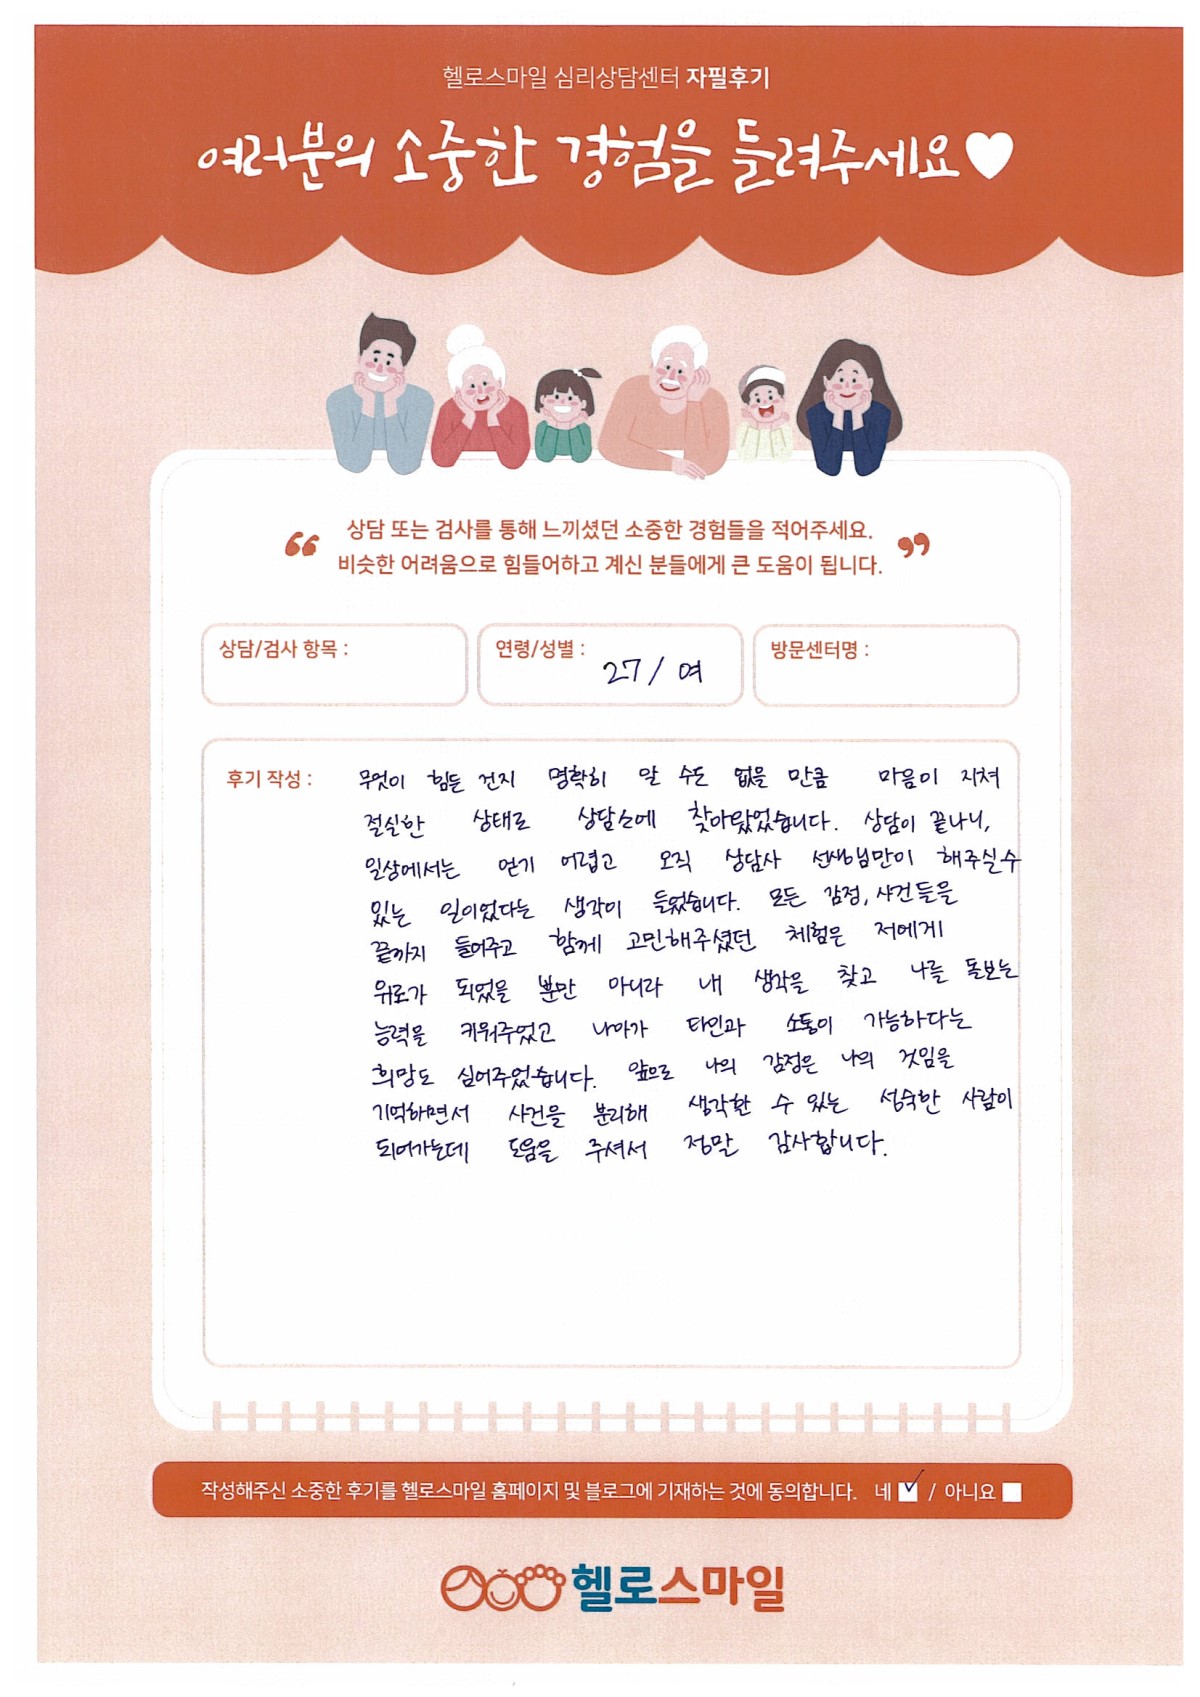 헬로스마일 심리상담센터 자필후기
여러분의 소중한 경험을 들려주세요♥
“ 상담 또는 검사를 통해 느끼셨던 소중한 경험들을 적어주세요. ”
비슷한 어려움으로 힘들어하고 계신 분들에게 큰 도움이 됩니다.
상담/검사 항목 :
연령/성별 : 27 / 여
방문센터명 :
후기 작성 : 무엇이 힘든 건지 명확히 알 수도 없을 만큼 마음이 지쳐
절실한 상태로 상담소에 찾아왔었습니다. 상담이 끝나니,
일상에서는 얻기 어렵고 오직 상담사 선생님만이 해주실수
있는 일이었다는 생각이 들었습니다. 모든 감정, 사건들을
끝까지 들어주고 함께 고민해주셨던 체험은 저에게
위로가 되었을 뿐만 아니라 내 생각을 찾고 나를 돌보는
능력을 키워주었고 나아가 타인과 소통이 가능하다는
희망도 심어주었습니다. 앞으로 나의 감정은 나의 것임을
기억하면서 사건을 분리해 생각할 수 있는 성숙한 사람이
되어가는데 도움을 주셔서 정말 감사합니다.
작성해주신 소중한 후기를 헬로스마일 홈페이지 및 블로그에 기재하는 것에 동의합니다. 네 ☑ / 아니요 □
헬로스마일